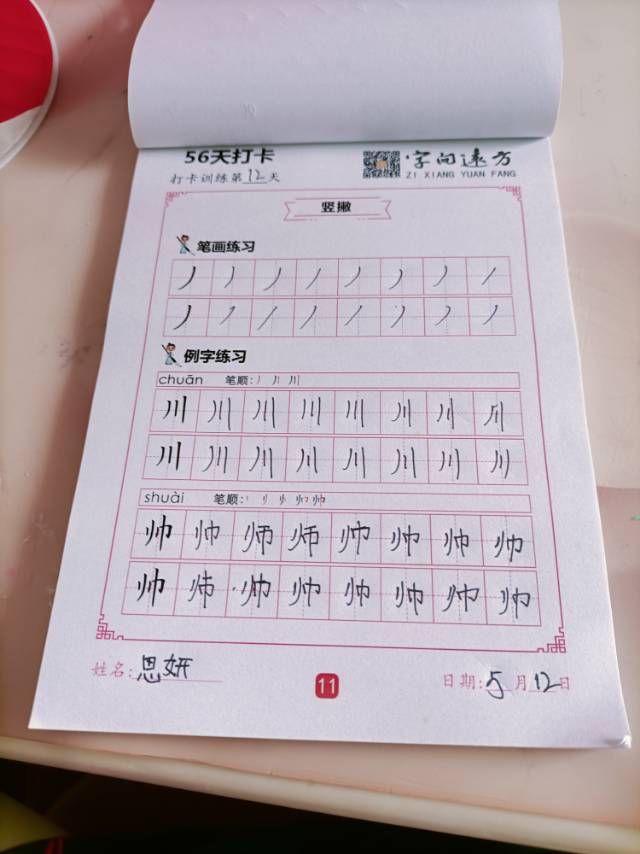 56天打卡
字向遠方
打卡训练第12天
ZI XIANG YUAN FANG
竖撇
笔画练习
丿 丿 丿 丿 丿 丿 丿 丿
丿 丿 丿 丿 丿 丿 丿 丿
例字练习
chuān 笔顺:丿 丿丨 川
川 川 川 川 川 川 川 川
川 川 川 川 川 川 川 川
shuài 笔顺:
帅 帅 师 师 帅 帅 帅 帅
帅 帅 帅 帅 帅 帅 帅 帅
姓名:思妍
11
日期:5月12日